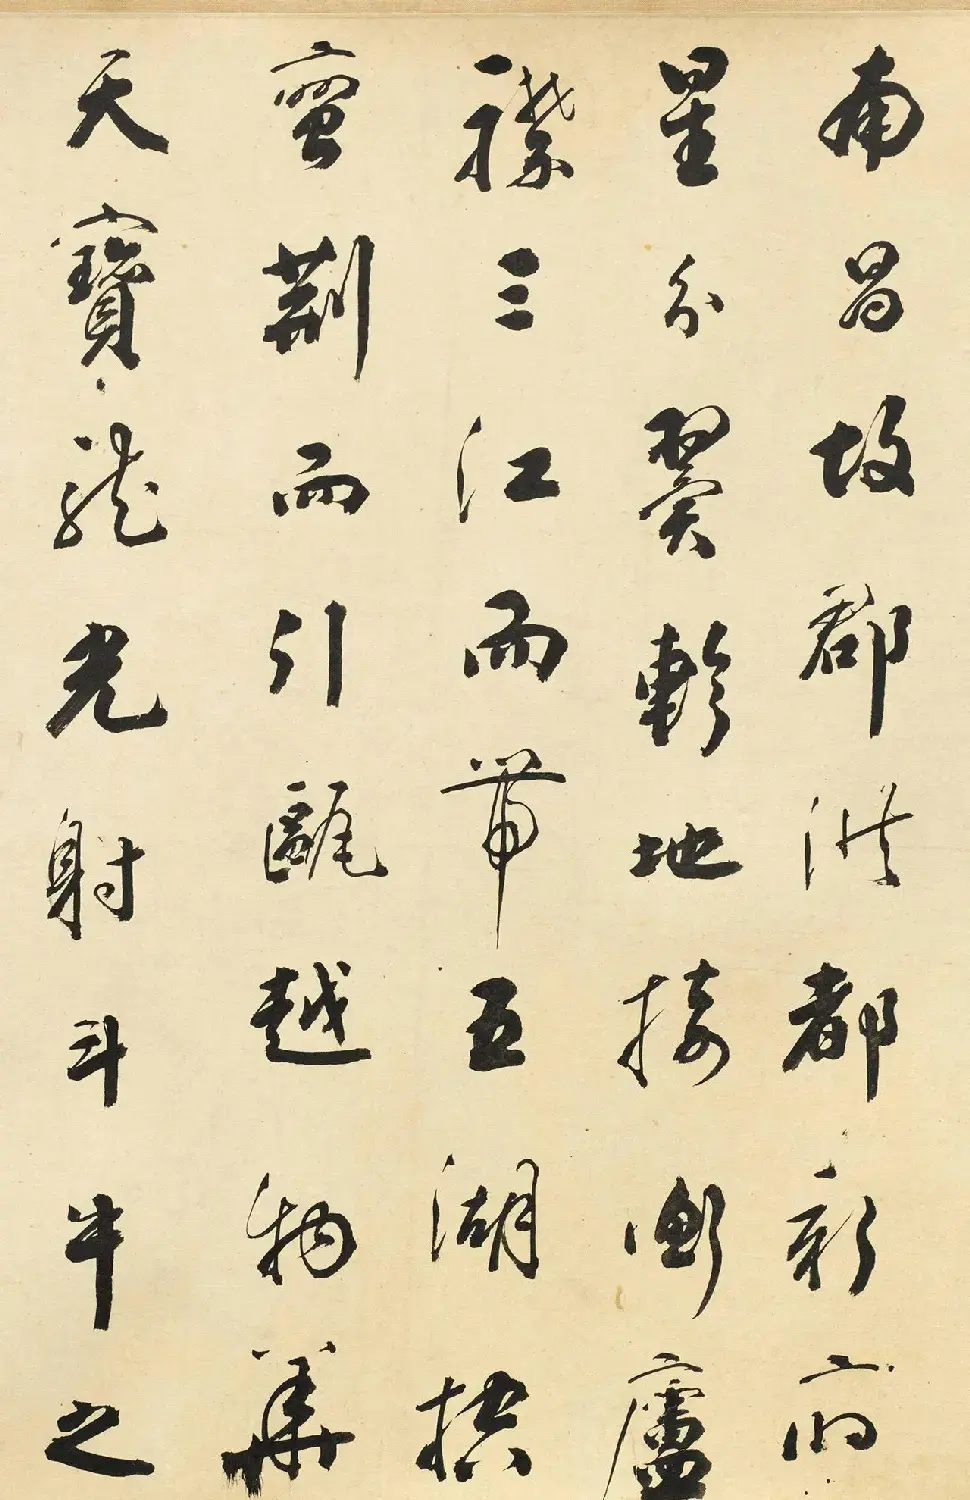 南昌故郡洪都新府
星分翼軫地接衡廬
襟三江而帶五湖控
蠻荊而引甌越物華
天寶龍光射斗牛之